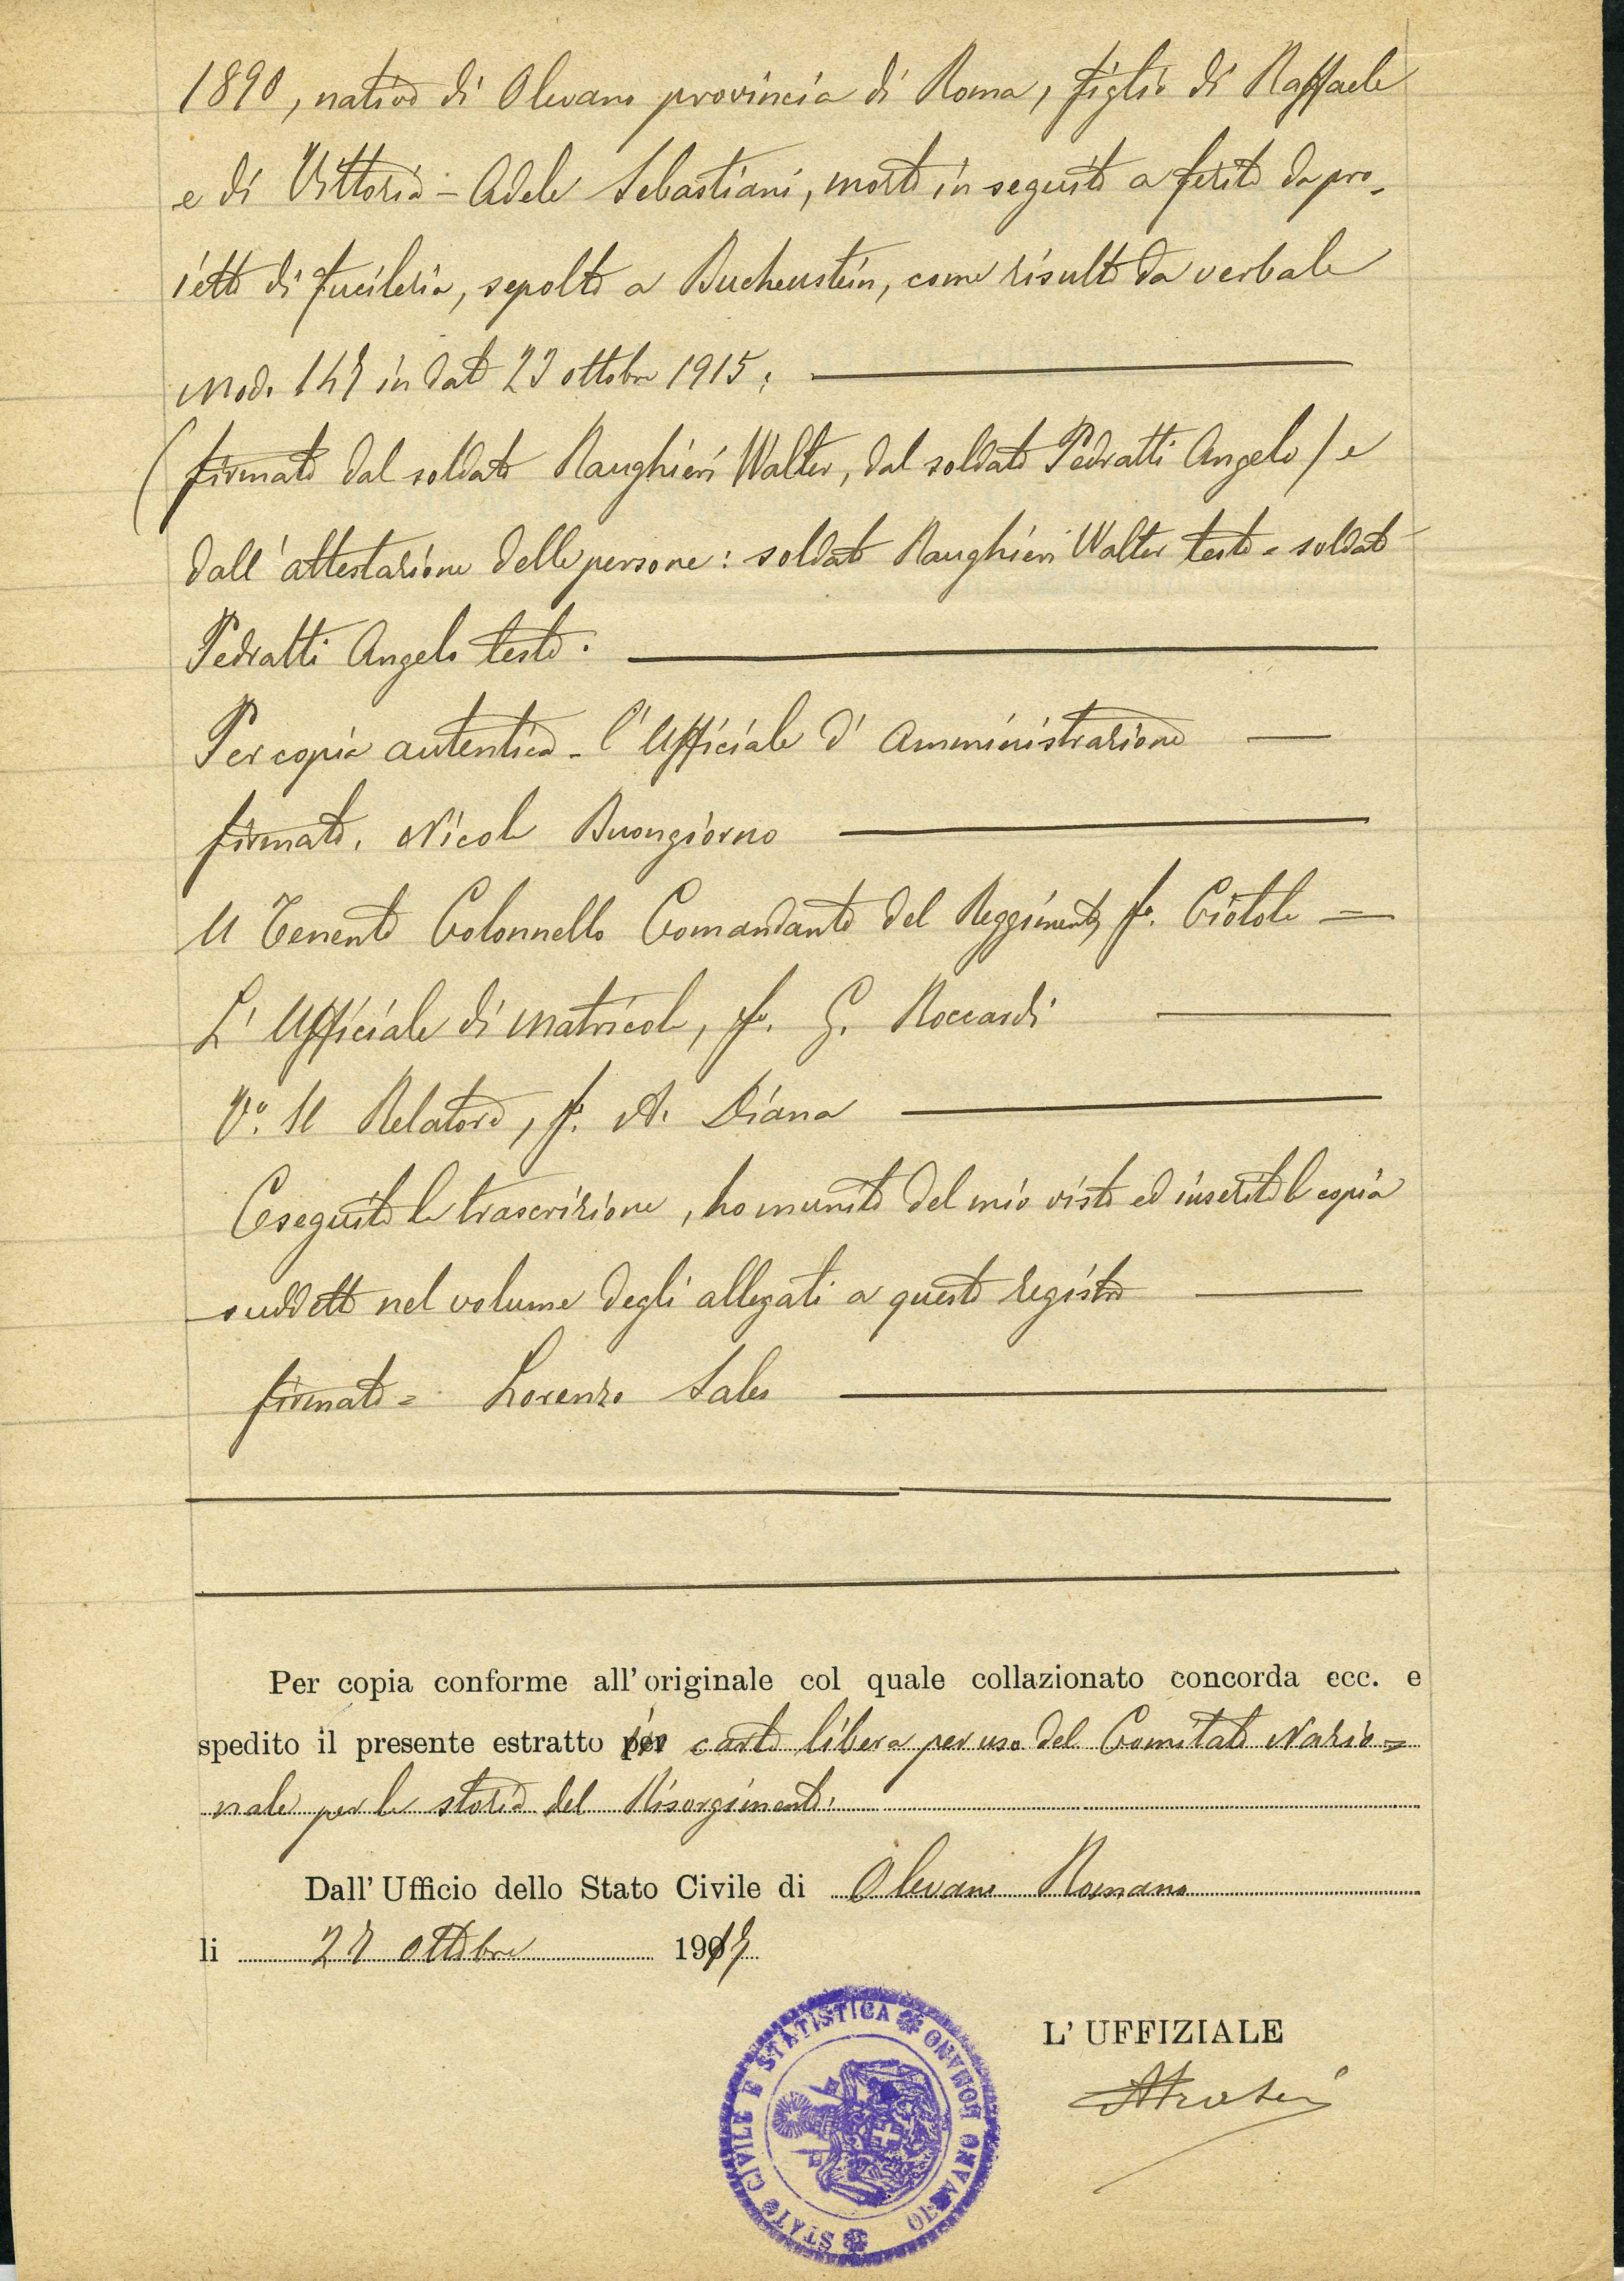 1890, nativo di Olevano provincia di Roma, figlio di Raffaele
e di Vittoria - Adele Sebastiani, morto in seguito a ferita da pro-
ietto di fucileria, sepolto a Buchenstein, come risulta da verbale
Mod. 147 in data 23 ottobre 1915;
(firmato dal soldato Ranghieri Walter, dal soldato Pedratti Angelo) e
dall'attestazione delle persone: soldato Ranghieri Walter teste = soldato
Pedratti Angelo teste.
Per copia autentica - l'Ufficiale d'Amministrazione
firmato. Nicola Buongiorno
Il Tenente Colonnello Comandante del Reggimento, f.o Ciotola =
L'Ufficiale di Matricola, f.o G. Roccardi
V.o Il Relatore, f.o A. Diana
Eseguita la trascrizione, ho munito del mio visto ed inserito la copia
suddetta nel volume degli allegati a questo registro
firmato = Lorenzo Sales
Per copia conforme all'originale col quale collazionato concorda ecc. e
spedito il presente estratto in carta libera per uso del Comitato Nazio=
nale per la storia del Risorgimento.
Dall'Ufficio dello Stato Civile di Olevano Romano
li 27 ottobre 1917
L'UFFIZIALE
STATO CIVILE E STATISTICA OLEVANO ROMANO